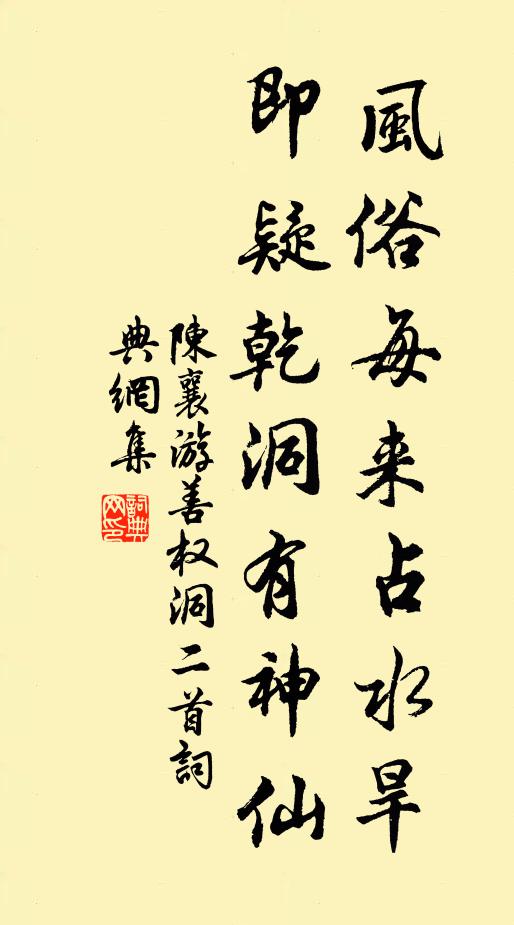 風俗每来占水旱
即疑乾洞有神仙
陳襄游善权洞二首詞
典網集
詞典
网印